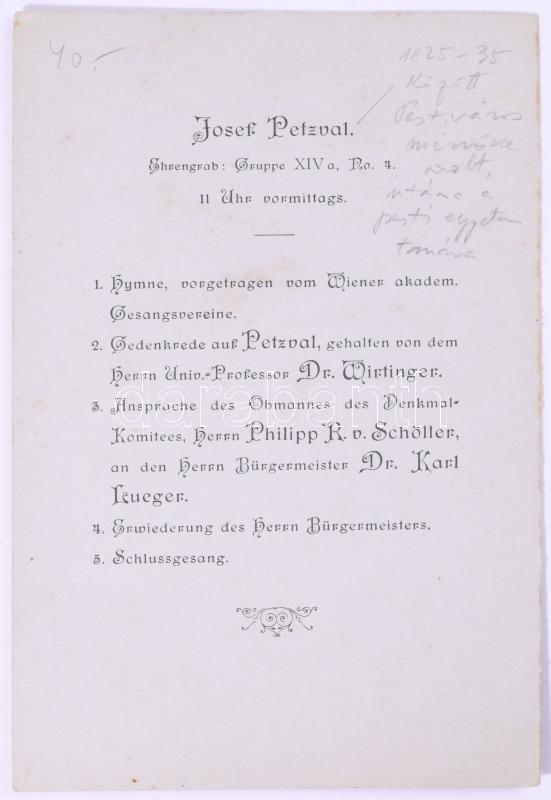 40.-
1825-35
között
Pest város
mérnöke
volt,
utána a
pesti egyetem
tanára
Josef Petzval.
Ehrengrab: Gruppe XIV a, No. 4.
11 Uhr vormittags.
1. Hymne, vorgetragen vom Wiener akadem.
Gesangsvereine.
2. Gedenkrede auf Petzval, gehalten von dem
Herrn Univ.-Professor Dr. Wirtinger.
3. Ansprache des Obmannes des Denkmal-
Komitees, Herrn Philipp R. v. Schöller,
an den Herrn Bürgermeister Dr. Karl
Lueger.
4. Erwiederung des Herrn Bürgermeisters.
5. Schlussgesang.
darabanth